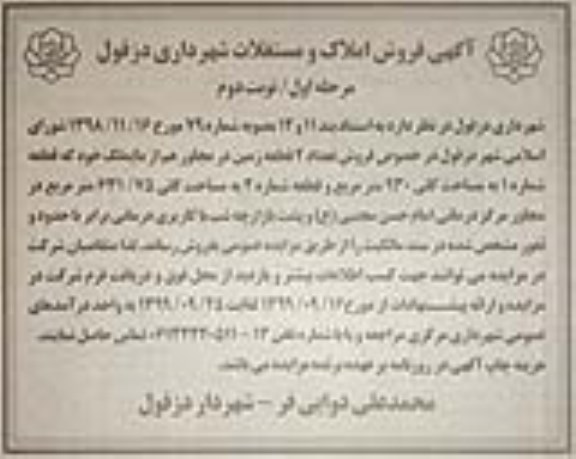 آگهی فروش املاک و مستغلات شهرداری دزفول
مرحله اول / نوبت دوم
شهرداری دزفول در نظر دارد به استناد بند ۱۱ و ۱۲ مصوبه شماره ۷۹ مورخ ۱۳۹۸/۱۱/۱۶ شورای
اسلامی شهر دزفول در خصوص فروش تعداد ۲ قطعه زمین در مجاور هم از مایملک خود که قطعه
شماره ۱ به مساحت کلی ۹۳۰ متر مربع و قطعه شماره ۲ به مساحت کلی ۶۳۱/۷۵ متر مربع در
مجاور مرکز درمانی امام حسن مجتبی (ع) و پشت بازارچه شب با کاربری درمانی برابر با حدود و
ثغور مشخص شده در سند مالکیت را از طریق مزایده عمومی بفروش رساند. لذا متقاضیان شرکت
در مزایده می توانند جهت کسب اطلاعات بیشتر و بازدید از محل فوق و دریافت فرم شرکت در
مزایده و ارائه پیشنهادات از مورخ ۱۳۹۹/۰۹/۱۶ لغایت ۱۳۹۹/۰۹/۲۵ به واحد درآمدهای
عمومی شهرداری مرکزی مراجعه و یا با شماره تلفن تماس حاصل نمایند.
هزینه چاپ آگهی در روزنامه بر عهده برنده مزایده می باشد.
محمدعلی دوایی فر - شهردار دزفول